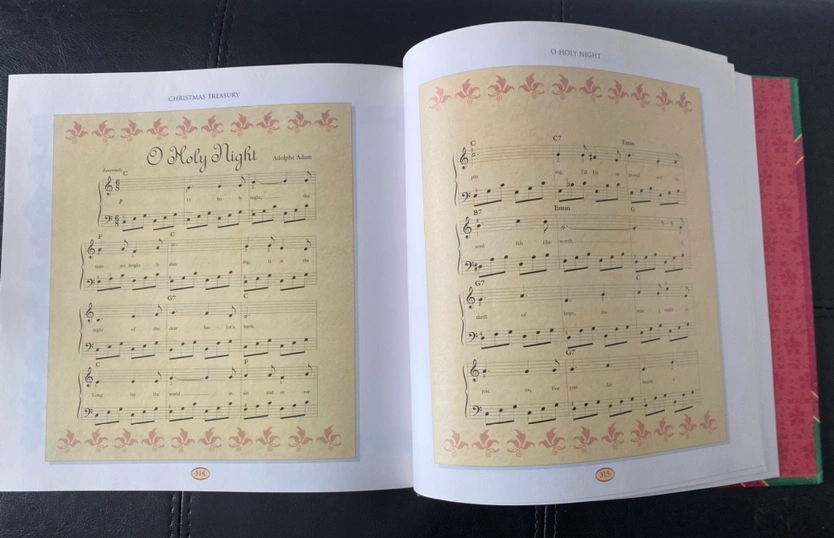 CHRISTMAS TREASURY
O Holy Night
Adolphe Adam
C
p
O ho - ly night, the
F C
stars are bright - ly shin - ing, it is the
G7 C
night of the dear Sav - ior's birth.
C F
Long lay the world in sin and er - ror
314
O HOLY NIGHT
C C7 Emin
pin - ing, Till He ap - peared and the
B7 Emin G
soul felt His worth. A
G7 C
thrill of hope, the wea - ry world re -
G7
joic - es, For yon - der
315